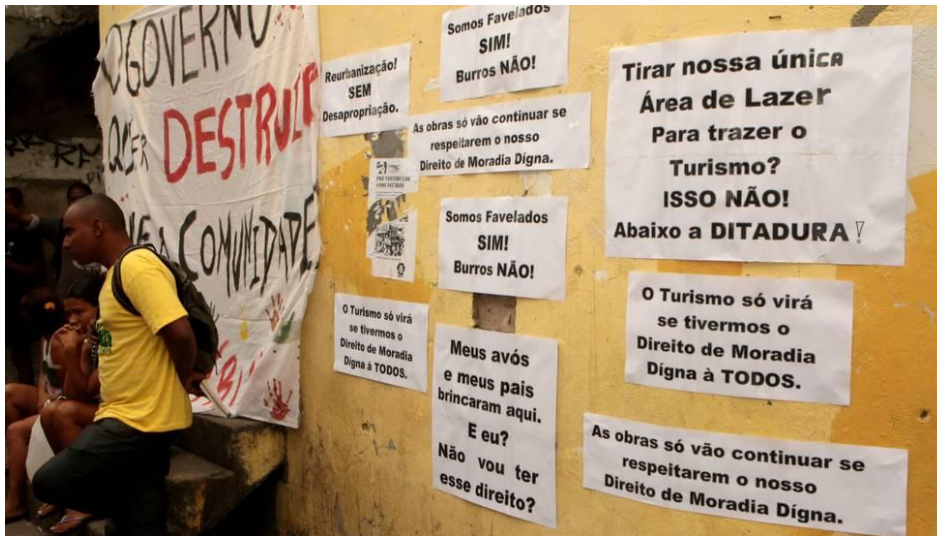 O GOVERNO
QUER DESTRUIR
A COMUNIDADE
Reurbanização!
SEM
Desapropriação.
Somos Favelados
SIM!
Burros NÃO!
As obras só vão continuar se
respeitarem o nosso
Direito de Moradia Dígna.
PRÉ VESTIBULAR
COMUNITÁRIO
Somos Favelados
SIM!
Burros NÃO!
O Turismo só virá
se tivermos o
Direito de Moradia
Dígna à TODOS.
Meus avós
e meus pais
brincaram aqui.
E eu?
Não vou ter
esse direito?
Tirar nossa única
Área de Lazer
Para trazer o
Turismo?
ISSO NÃO!
Abaixo a DITADURA!
O Turismo só virá
se tivermos o
Direito de Moradia
Dígna à TODOS.
As obras só vão continuar se
respeitarem o nosso
Direito de Moradia Dígna.